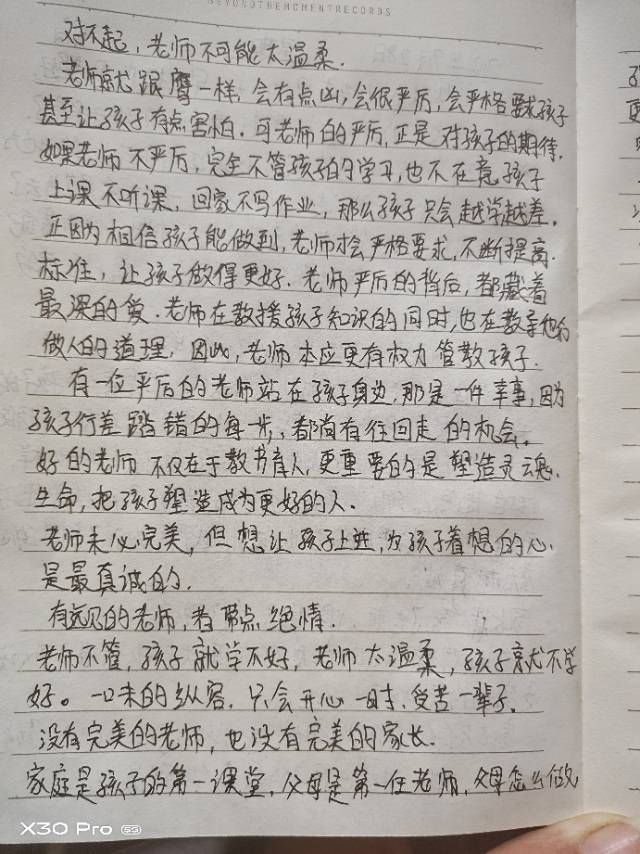 BEYONDTHEMOMENTRECORDS
对不起，老师不可能太温柔.
老师就跟鹰一样，会有点凶，会很严厉，会严格要求孩子
甚至让孩子有点害怕. 可老师的严厉，正是对孩子的期待.
如果老师不严厉，完全不管孩子的学习，也不在意孩子
上课不听课，回家不写作业，那么孩子只会越学越差.
正因为相信孩子能做到，老师才会严格要求，不断提高.
标准，让孩子做得更好. 老师严厉的背后，都藏着
最深的爱. 老师在教授孩子知识的同时，也在教导他们
做人的道理，因此，老师本应更有权力管教孩子.
有一位严厉的老师站在孩子身边，那是一件幸事，因为
孩子行差踏错的每一步，都尚有往回走的机会。
好的老师不仅在于教书育人，更重要的是塑造灵魂.
生命，把孩子塑造成为更好的人.
老师未必完美，但想让孩子上进，为孩子着想的心.
是最真诚的.
有远见的老师，都带点绝情.
老师不管，孩子就学不好，老师太温柔，孩子就不学
好。一味的纵容，只会开心一时，受苦一辈子.
没有完美的老师，也没有完美的家长.
家庭是孩子的第一课堂，父母是第一任老师，父母怎么做
X30 Pro 5G